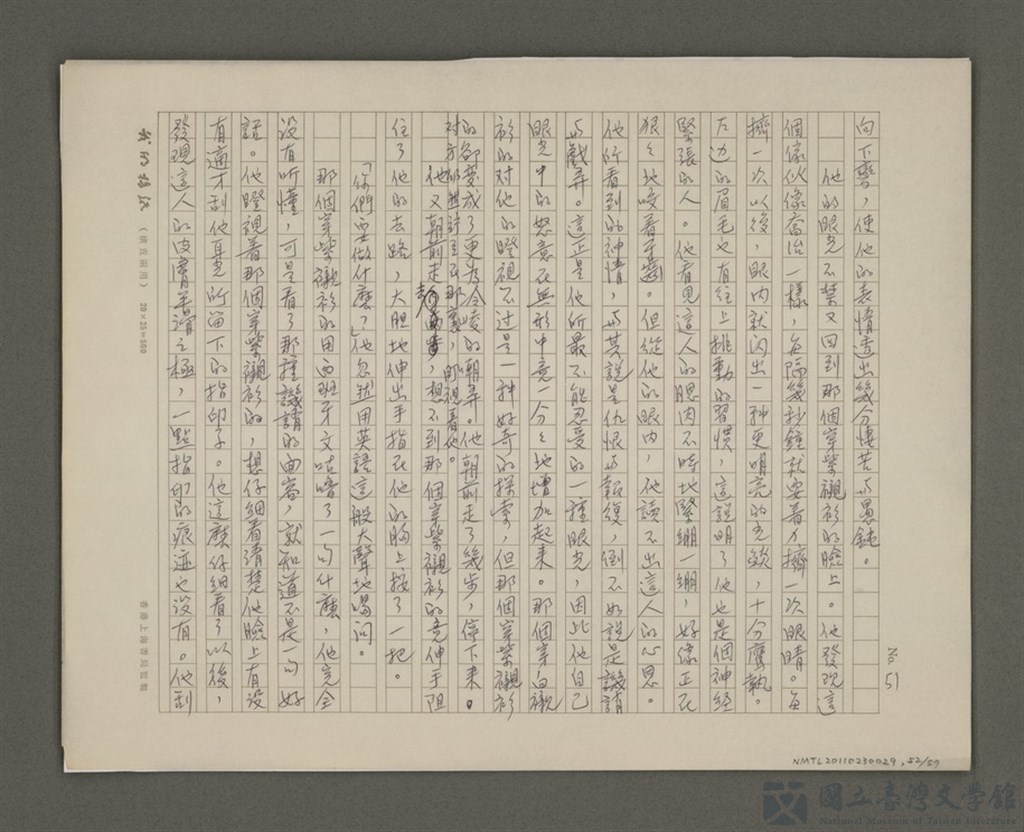 No 51
向下彎，使他的表情透出幾分悽苦与愚鈍。
他的眼光不禁又回到那個穿紫襯衫的臉上。他發现這
個傢伙像喬治一樣，每隔幾秒鐘就要着力擠一次眼睛。每
擠一次以後，眼内就闪出一种更明亮的光燄，十分鷹執。
左边的眉毛也有往上挑動的習慣，這說明了他也是個神經
緊張的人。他看見這人的腮肉不時地緊綳一綳，好像正在
狠々地咬着牙齒。但從他的眼内，他讀不出這人的心思。
他所看到的神情，与其說是仇恨与報復，倒不如說是譏誚
与戲弄。這正是他所最不能忍受的一種眼光，因此他自己
眼光中的怒意在無形中竟一分々地增加起来。那個穿白襯
衫的对他的瞪視不过是一种好奇的探索，但那個穿紫襯衫
的卻变成了更为冷峻的嘲弄。他朝前走了幾步，停下来。
对方他又朝前走，想不到那個穿紫襯衫的竟伸手阻
住了他的去路，大胆地伸出手指在他的胸上按了一把。
「你們要做什麽？」他忽然用英語這般大聲地喝问。
那個穿紫襯衫的用西班牙文咕噜了一句什麽，他完全
没有听懂，可是看了那種譏誚的面容，就知道不是一句好
話。他瞪視着那個穿紫襯衫的，想仔細看清楚他臉上有没
有適才刮他耳光所留下的指印子。他這麽仔細看了以後，
發現這人的皮膚平滑之極，一點指印的痕迹也没有。他到
我的稿紙 （橫直兩用） 20×25=500 香港上海書局監製
NMTL20110230029, 52/57
國立臺灣文學館
National Museum of Taiwan Literature